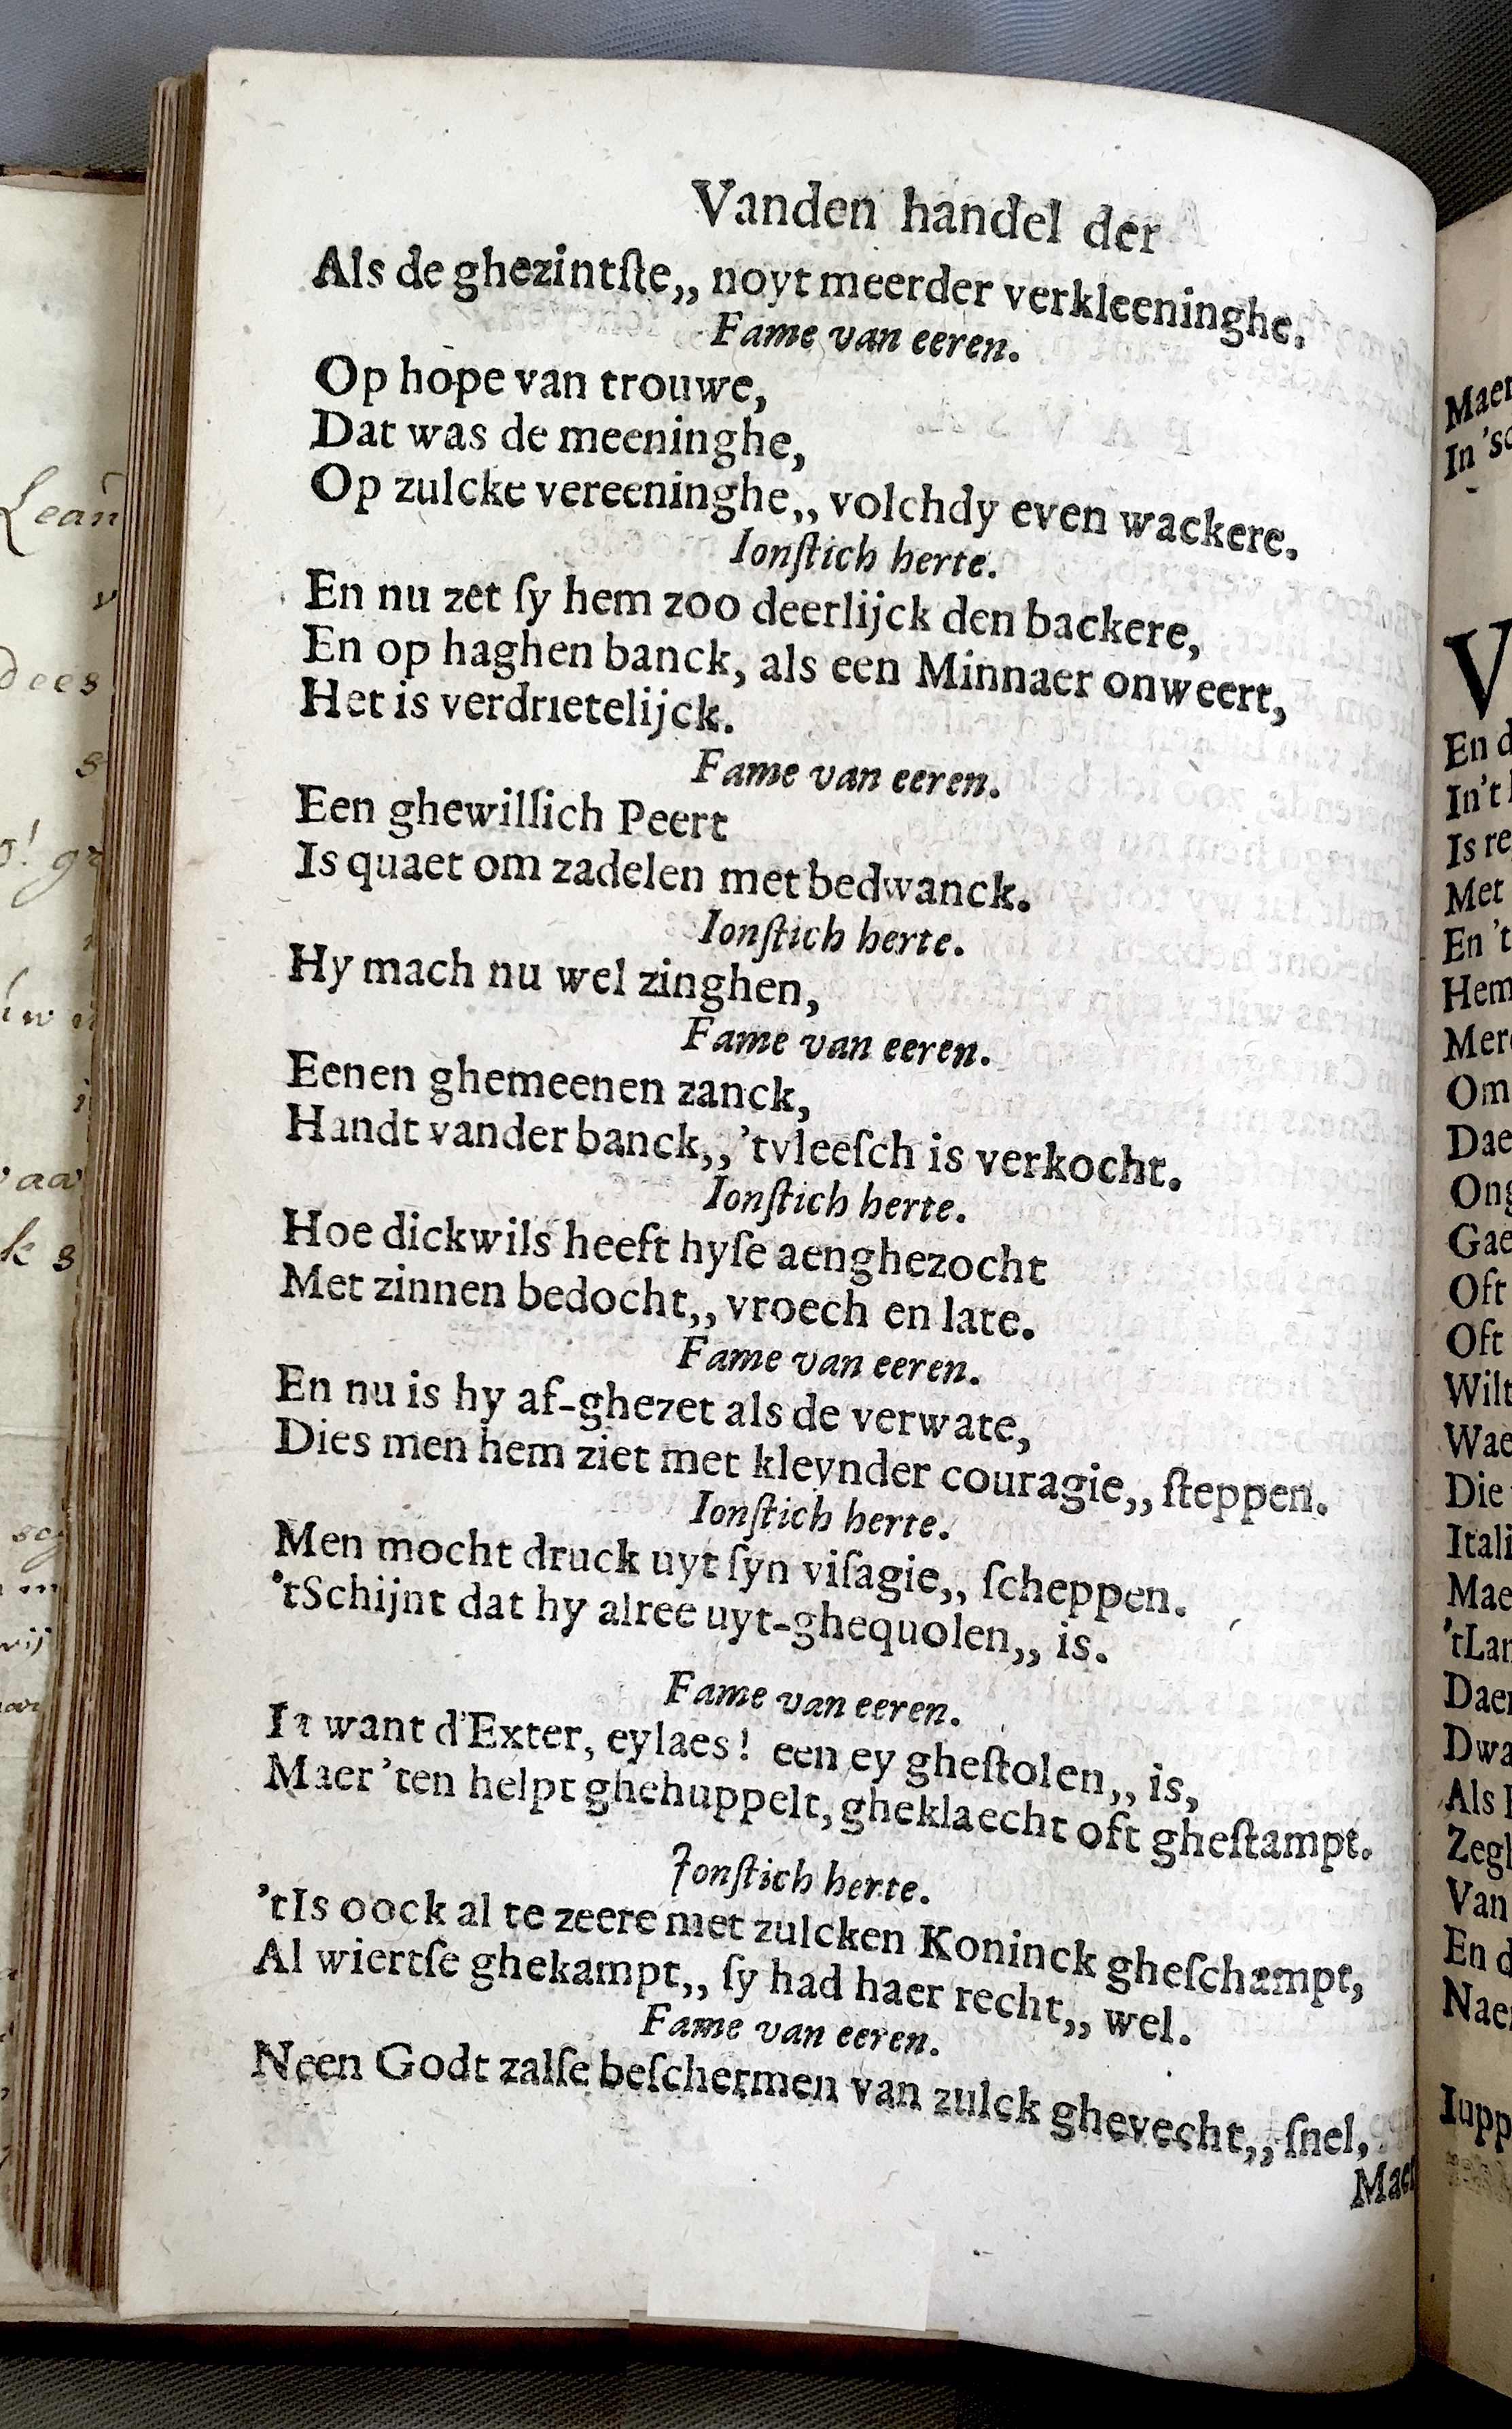 Vanden handel der
Als de ghezintſte,, noyt meerder verkleeninghe.
Fame van eeren.
Op hope van trouwe,
Dat was de meeninghe,
Op zulcke vereeninghe,, volchdy even wackere.
Ionſtich herte.
En nu zet ſy hem zoo deerlijck den backere,
En op haghen banck, als een Minnaer onweert,
Het is verdrietelijck.
Fame van eeren.
Een ghewillich Peert
Is quaet om zadelen met bedwanck.
Ionſtich herte.
Hy mach nu wel zinghen,
Fame van eeren.
Eenen ghemeenen zanck,
Handt vander banck,, 'tvleeſch is verkocht.
Ionſtich herte.
Hoe dickwils heeft hyſe aenghezocht
Met zinnen bedocht,, vroech en late.
Fame van eeren.
En nu is hy af-ghezet als de verwate,
Dies men hem ziet met kleynder couragie,, ſteppen.
Ionſtich herte.
Men mocht druck uyt ſyn viſagie,, ſcheppen.
'tSchijnt dat hy alree uyt-ghequolen,, is.
Fame van eeren.
Ia want d'Exter, eylaes! een ey gheſtolen,, is,
Maer 'ten helpt ghehuppelt, gheklaecht oft gheſtampt.
Ionſtich herte.
'tIs oock al te zeere met zulcken Koninck gheſchampt,
Al wiertſe ghekampt,, ſy had haer recht,, wel.
Fame van eeren.
Neen Godt zalſe beſchermen van zulck ghevecht,, ſnel,
Maer
Maer
In 'sc
V
En d
In't
Is re
Met
En 't
Hem
Mer
Om
Dae
Ong
Gae
Oft
Oft
Wilt
Wae
Die
Itali
Mae
'tLan
Daer
Dwa
Als
Zegh
Van
En d
Nae
Iupp